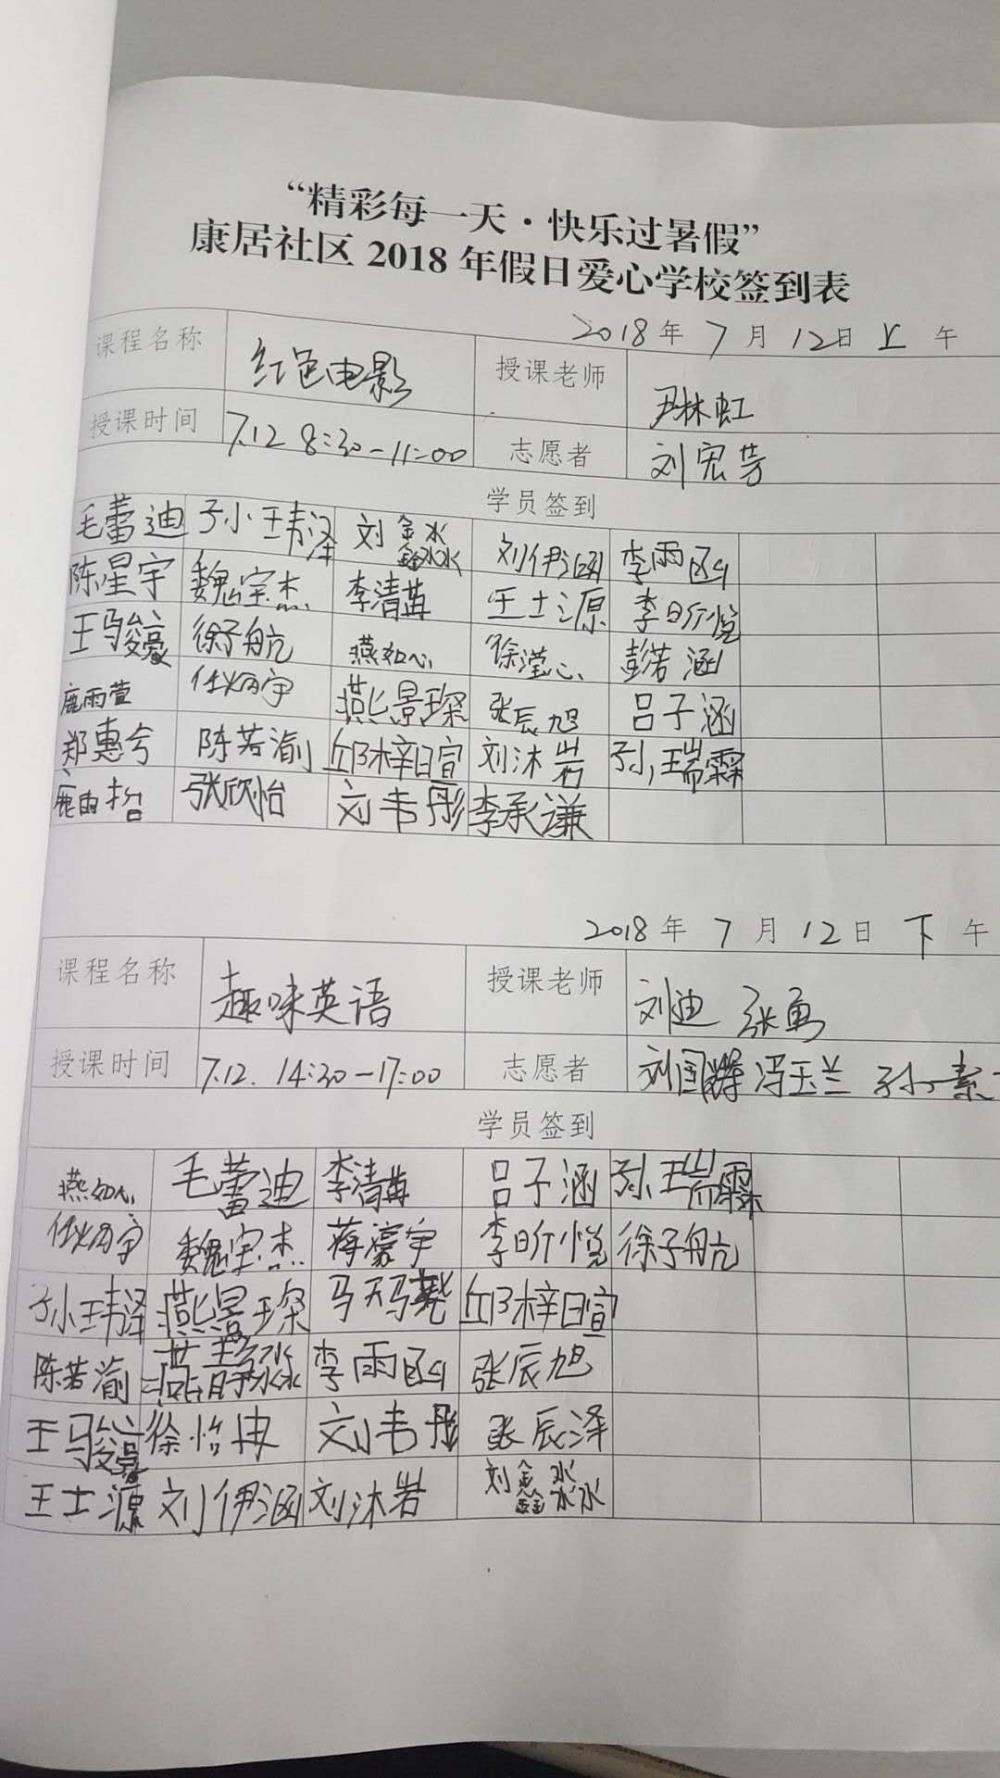 “精彩每一天·快乐过暑假”
康居社区 2018 年假日爱心学校签到表
2018年 7 月 12日 上 午
课程名称 红色电影 授课老师 尹林虹
授课时间 7.12 8:30-11:00 志愿者 刘宏芳
学员签到
毛蕾迪 孙玮泽 刘鑫淼 刘伊涵 李雨函
陈星宇 魏宇杰 李清菁 王士源 李昕悦
王骏豪 徐子航 燕如心 徐滢心 彭若涵
鹿雨萱 任炳宇 燕景琛 张辰旭 吕子涵
郑惠兮 陈若渝 邱梓暄 刘沐岩 孙瑞霖
鹿雨哲 张欣怡 刘韦彤 李承谦
2018年 7 月 12日 下 午
课程名称 趣味英语 授课老师 刘迪 张勇
授课时间 7.12. 14:30-17:00 志愿者 刘国辉 冯玉兰 孙素
学员签到
燕如心 毛蕾迪 李清菁 吕子涵 孙瑞霖
任炳宇 魏宇杰 蒋濠宇 李昕悦 徐子航
孙玮泽 燕景琛 马天骜 邱梓暄
陈若渝 李雨函 张辰旭
王骏豪 徐怡冉 刘韦彤 张辰泽
王士源 刘伊涵 刘沐岩 刘鑫淼